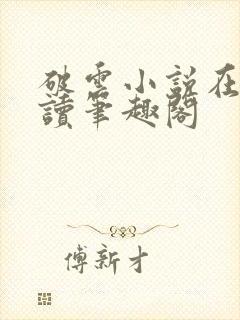 破雲小說在
讀筆趣閣
傅新才